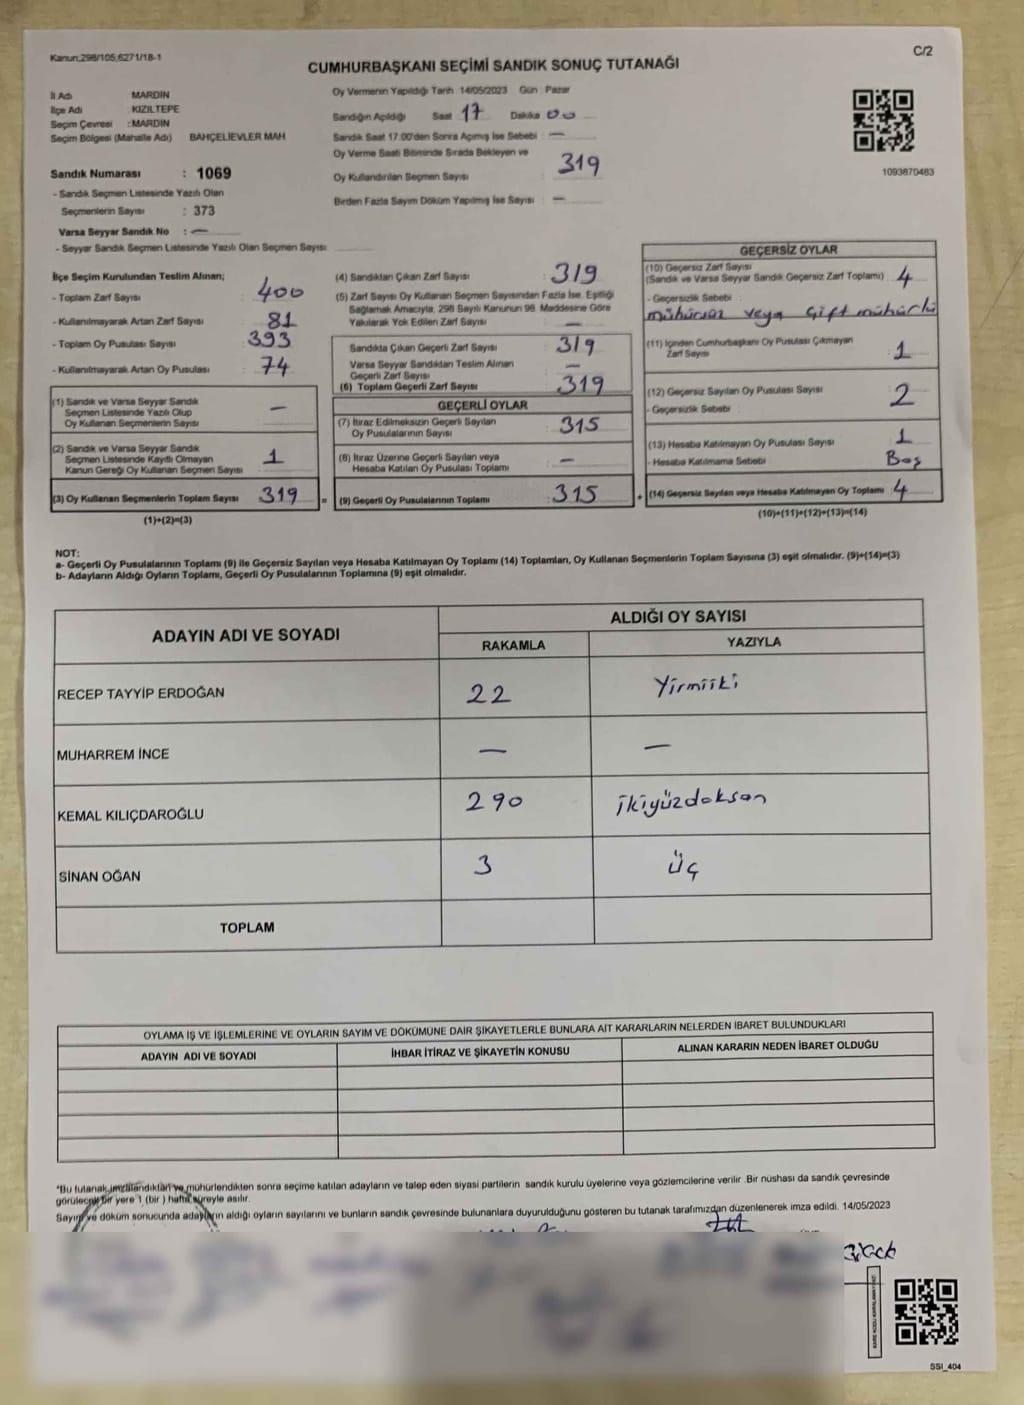 Kanun;298/105;6271/18-1
C/2
CUMHURBAŞKANI SEÇİMİ SANDIK SONUÇ TUTANAĞI
İl Adı MARDİN
İlçe Adı KIZILTEPE
Seçim Çevresi : MARDİN
Seçim Bölgesi (Mahalle Adı) BAHÇELİEVLER MAH.
Sandık Numarası : 1069
- Sandık Seçmen Listesinde Yazılı Olan
Seçmenlerin Sayısı : 373
Varsa Seyyar Sandık No : —
- Seyyar Sandık Seçmen Listesinde Yazılı Olan Seçmen Sayısı:
Oy Vermenin Yapıldığı Tarih :14/05/2023 Gün : Pazar
Sandığın Açıldığı Saat 17 Dakika 00
Sandık Saat 17:00'den Sonra Açımış İse Sebebi : —
Oy Verme Saati Bitiminde Sırada Bekleyen ve
Oy Kullandırılan Seçmen Sayısı : 319
Birden Fazla Sayım Döküm Yapılmış İse Sayısı : —
1093870483
İlçe Seçim Kurulundan Teslim Alınan;
- Toplam Zarf Sayısı 400
- Kullanılmayarak Artan Zarf Sayısı 81
- Toplam Oy Pusulası Sayısı 393
- Kullanılmayarak Artan Oy Pusulası 74
(1) Sandık ve Varsa Seyyar Sandık
Seçmen Listesinde Yazılı Olup
Oy Kullanan Seçmenlerin Sayısı —
(2) Sandık ve Varsa Seyyar Sandık
Seçmen Listesinde Kayıtlı Olmayan
Kanun Gereği Oy Kullanan Seçmen Sayısı 1
(3) Oy Kullanan Seçmenlerin Toplam Sayısı 319 =
(1)+(2)=(3)
(4) Sandıktan Çıkan Zarf Sayısı : 319
(5) Zarf Sayısı Oy Kullanan Seçmen Sayısından Fazla İse, Eşitliği
Sağlamak Amacıyla, 298 Sayılı Kanunun 98. Maddesine Göre
Yakılarak Yok Edilen Zarf Sayısı —
Sandıkta Çıkan Geçerli Zarf Sayısı : 319
Varsa Seyyar Sandıktan Teslim Alınan
Geçerli Zarf Sayısı —
(6) Toplam Geçerli Zarf Sayısı 319
GEÇERLİ OYLAR
(7) İtiraz Edilmeksizin Geçerli Sayılan
Oy Pusulalarının Sayısı : 315
(8) İtiraz Üzerine Geçerli Sayılan veya
Hesaba Katılan Oy Pusulası Toplamı : —
(9) Geçerli Oy Pusulalarının Toplamı : 315 +
GEÇERSİZ OYLAR
(10) Geçersiz Zarf Sayısı
(Sandık ve Varsa Seyyar Sandık Geçersiz Zarf Toplamı) 4
- Geçersizlik Sebebi
mühürsüz veya çift mühürlü
(11) İçinden Cumhurbaşkanı Oy Pusulası Çıkmayan
Zarf Sayısı 1
(12) Geçersiz Sayılan Oy Pusulası Sayısı 2
- Geçersizlik Sebebi :
(13) Hesaba Katılmayan Oy Pusulası Sayısı 1
- Hesaba Katılmama Sebebi Boş
(14) Geçersiz Sayılan veya Hesaba Katılmayan Oy Toplamı 4
(10)+(11)+(12)+(13)=(14)
NOT:
a- Geçerli Oy Pusulalarının Toplamı (9) ile Geçersiz Sayılan veya Hesaba Katılmayan Oy Toplamı (14) Toplamları, Oy Kullanan Seçmenlerin Toplam Sayısına (3) eşit olmalıdır. (9)+(14)=(3)
b- Adayların Aldığı Oyların Toplamı, Geçerli Oy Pusulalarının Toplamına (9) eşit olmalıdır.
ADAYIN ADI VE SOYADI
ALDIĞI OY SAYISI
RAKAMLA YAZIYLA
RECEP TAYYİP ERDOĞAN 22 Yirmiiki
MUHARREM İNCE — —
KEMAL KILIÇDAROĞLU 290 ikiyüzdoksan
SİNAN OĞAN 3 üç
TOPLAM
OYLAMA İŞ VE İŞLEMLERİNE VE OYLARIN SAYIM VE DÖKÜMÜNE DAİR ŞİKAYETLERLE BUNLARA AİT KARARLARIN NELERDEN İBARET BULUNDUKLARI
ADAYIN ADI VE SOYADI İHBAR İTİRAZ VE ŞİKAYETİN KONUSU ALINAN KARARIN NEDEN İBARET OLDUĞU
*Bu tutanak imzalandıktan ve mühürlendikten sonra seçime katılan adayların ve talep eden siyasi partilerin sandık kurulu üyelerine veya gözlemcilerine verilir .Bir nüshası da sandık çevresinde
görülecek bir yere 1 (bir ) hafta süreyle asılır.
Sayım ve döküm sonucunda adayların aldığı oyların sayılarını ve bunların sandık çevresinde bulunanlara duyurulduğunu gösteren bu tutanak tarafımızdan düzenlenerek imza edildi. 14/05/2023
SSI_404